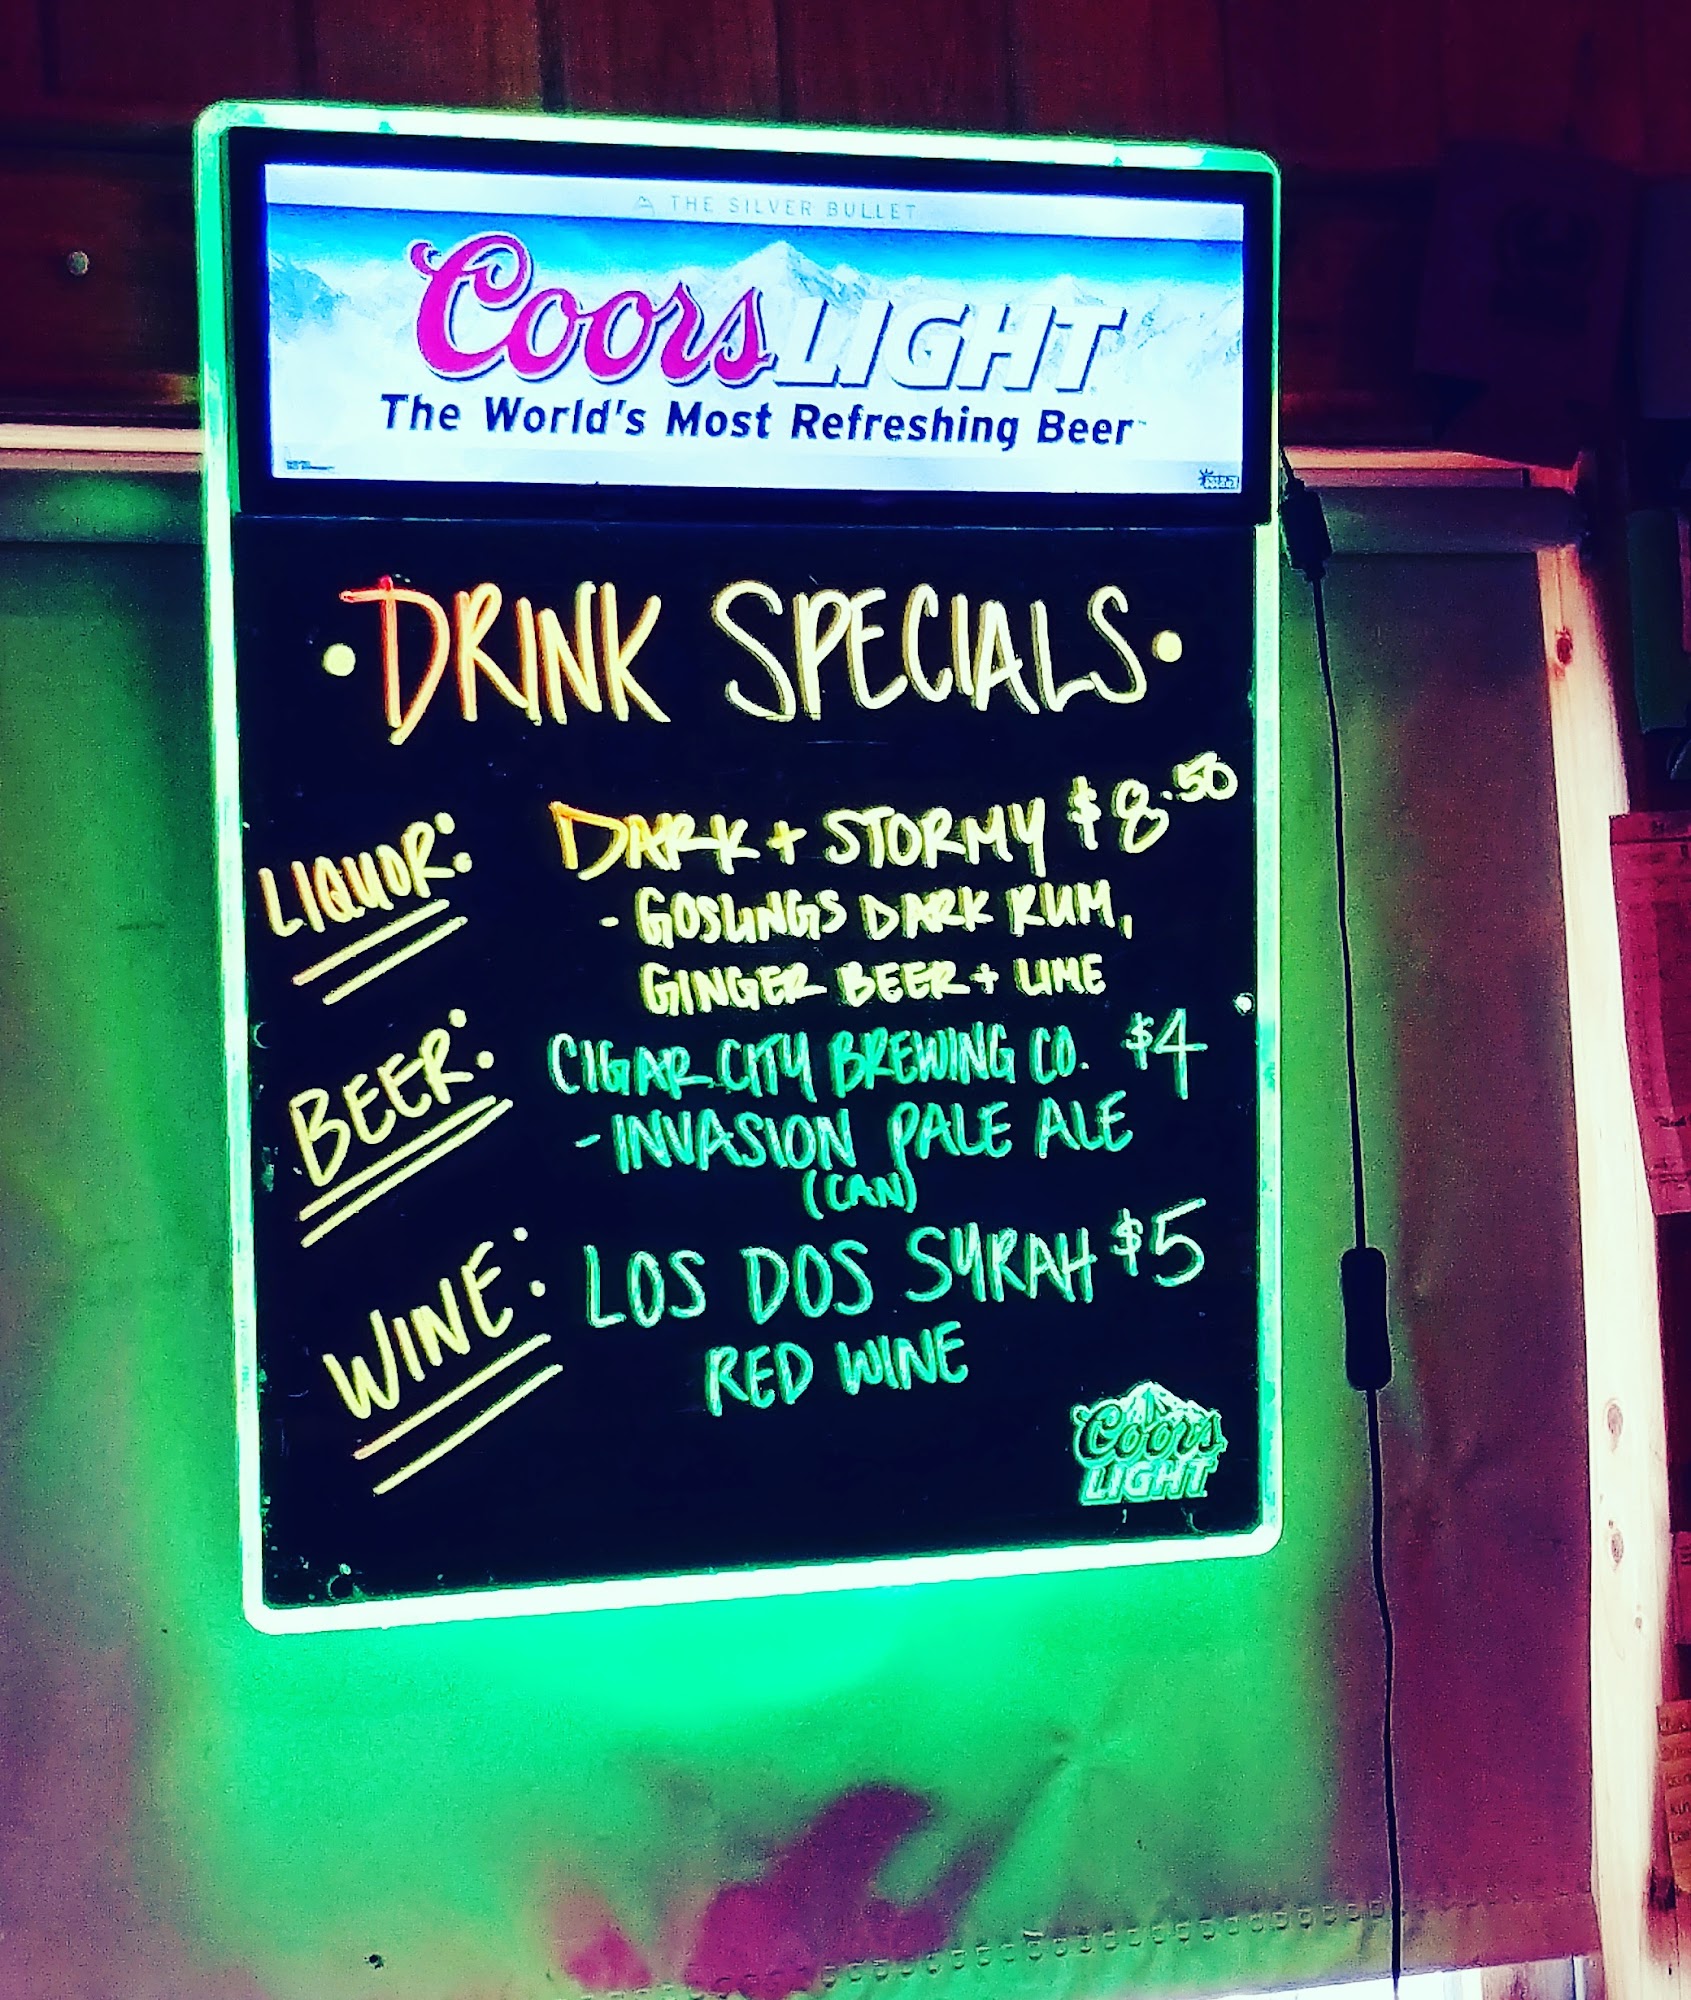 THE SILVER BULLET
Coors LIGHT
The World's Most Refreshing Beer™
• DRINK SPECIALS •
LIQUOR: DARK + STORMY $8.50
- GOSLINGS DARK RUM,
GINGER BEER + LIME
BEER: CIGAR CITY BREWING CO. $4
- INVASION PALE ALE
(CAN)
WINE: LOS DOS SYRAH $5
RED WINE
Coors
LIGHT